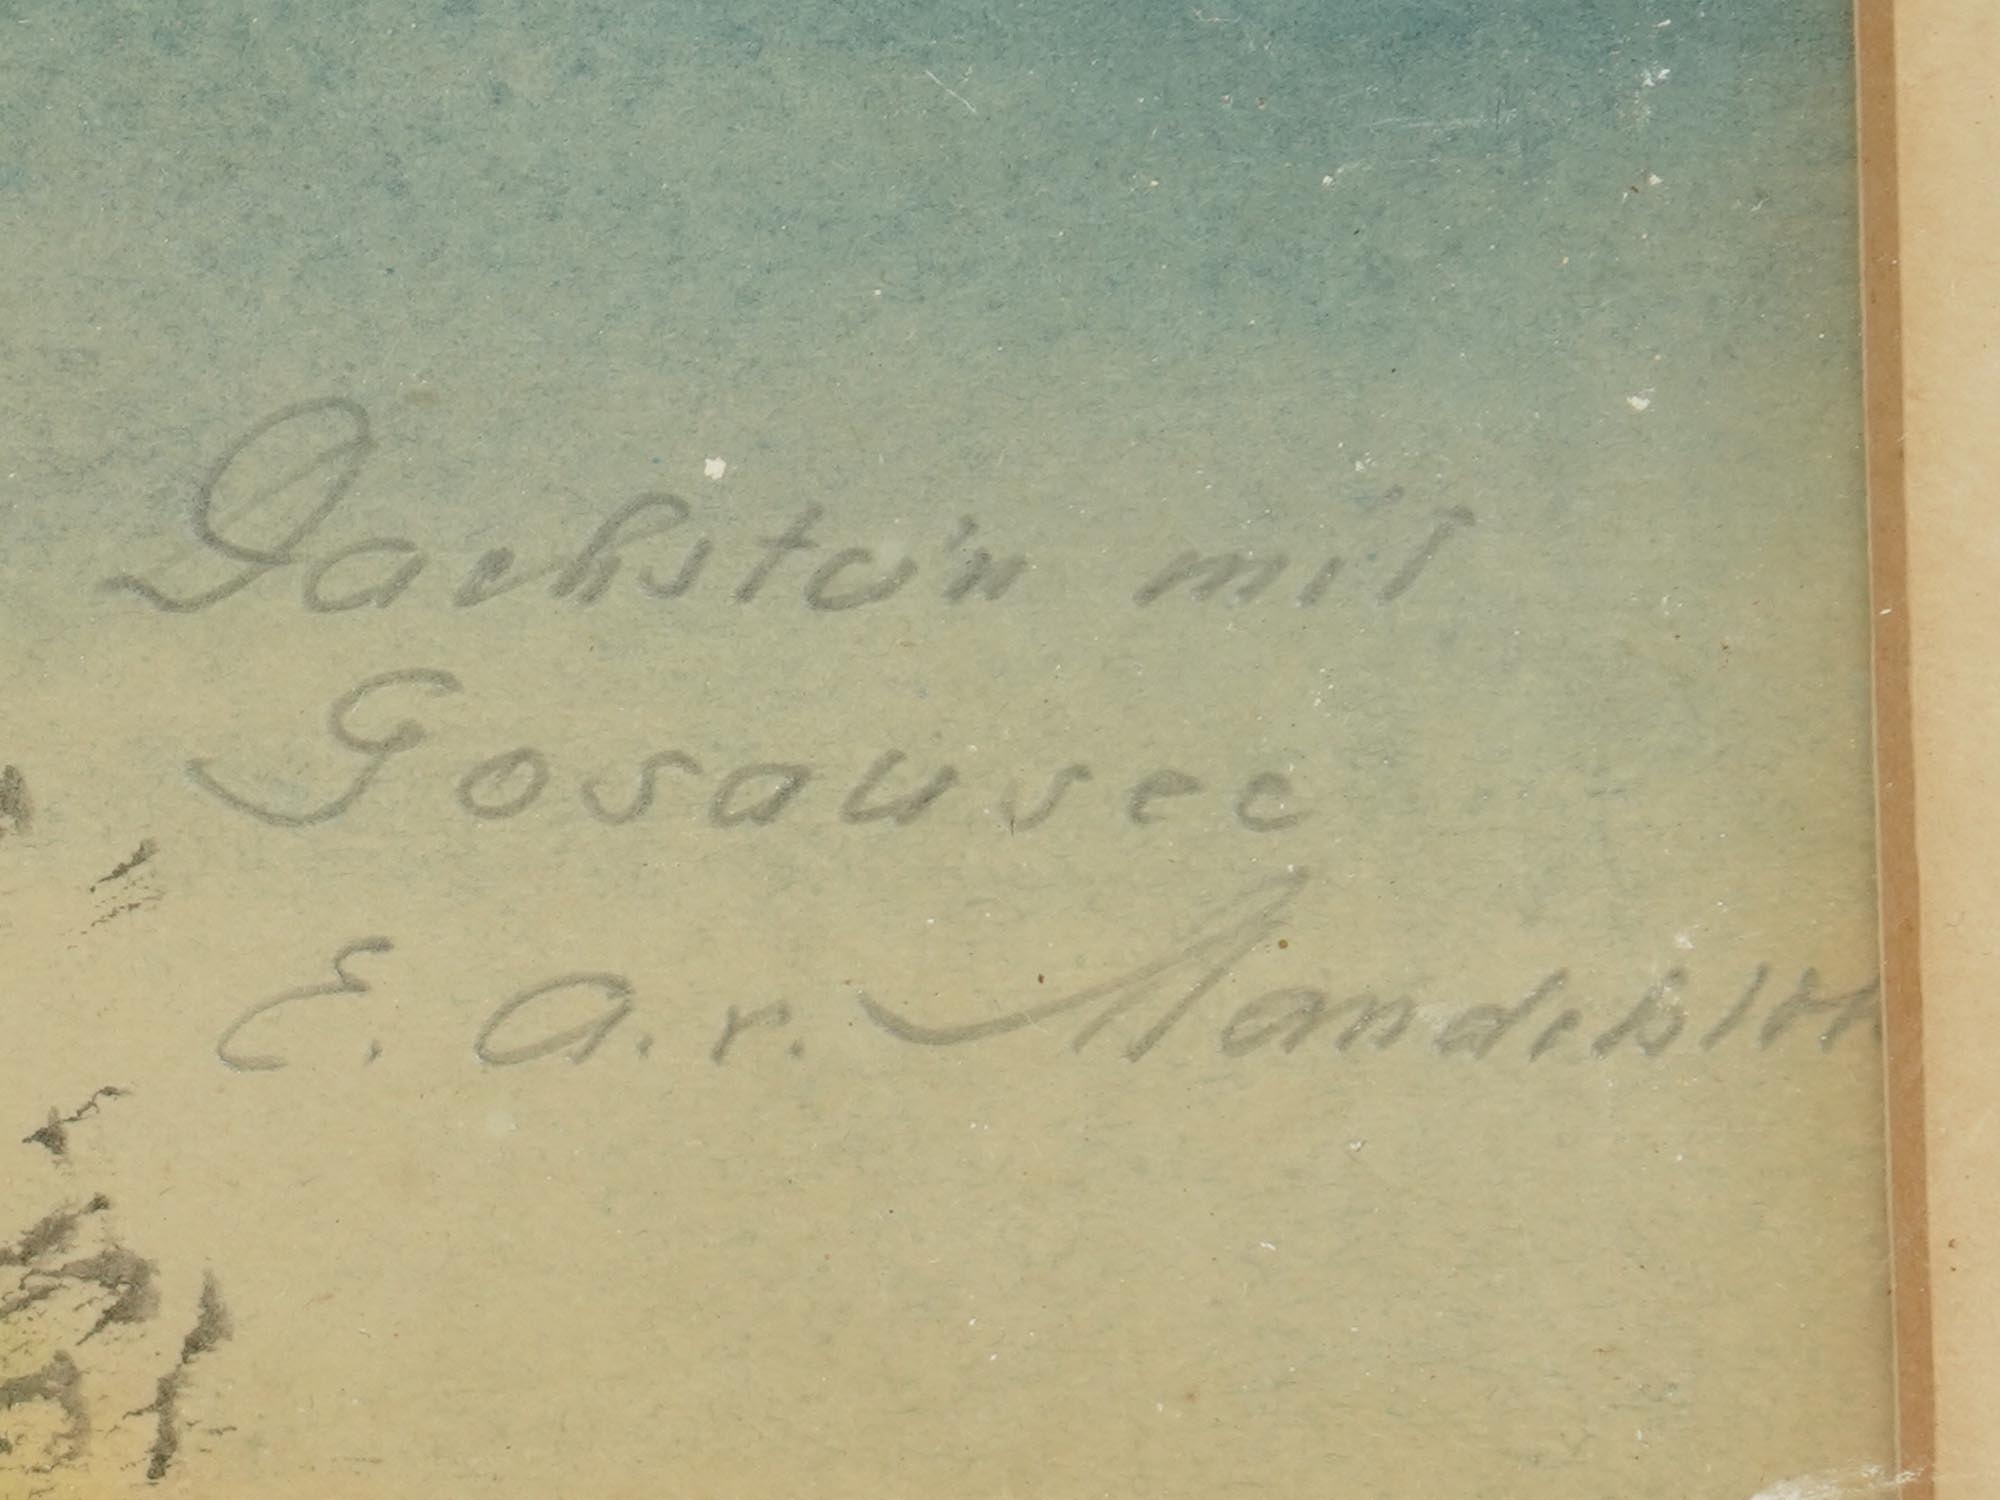 Dachstein mit
Gosausee
E. A. v. Mandelsloh